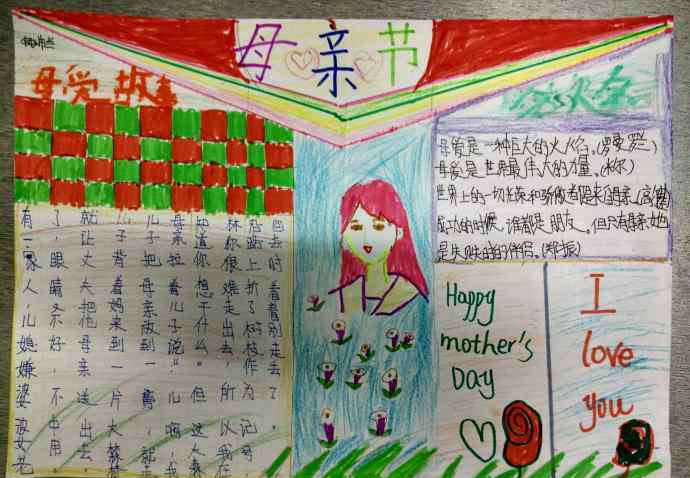 母亲节
母爱故事
有一家人儿媳嫌婆
了,眼睛不好,不中用,
就让丈夫把他母亲送出去,
儿子背着妈来到一片大森林
儿子把母亲放到一
母亲拉着儿子说"儿啊,我
知道你想干什么"但这大森
林你很难走出去,所以我在
沿路上折了树枝作为记号,
回去时看着别走去了。
母爱是一种巨大的火焰。(罗曼罗兰)
母爱是世界最伟大的力量。(米尔)
世界上的一切光荣和骄傲都来自母亲(高尔基)
成功的时候,谁都是朋友。但只有母亲她
是失败的时的伴侣。(郑振)
Happy
mother's
DAY
I
love
you